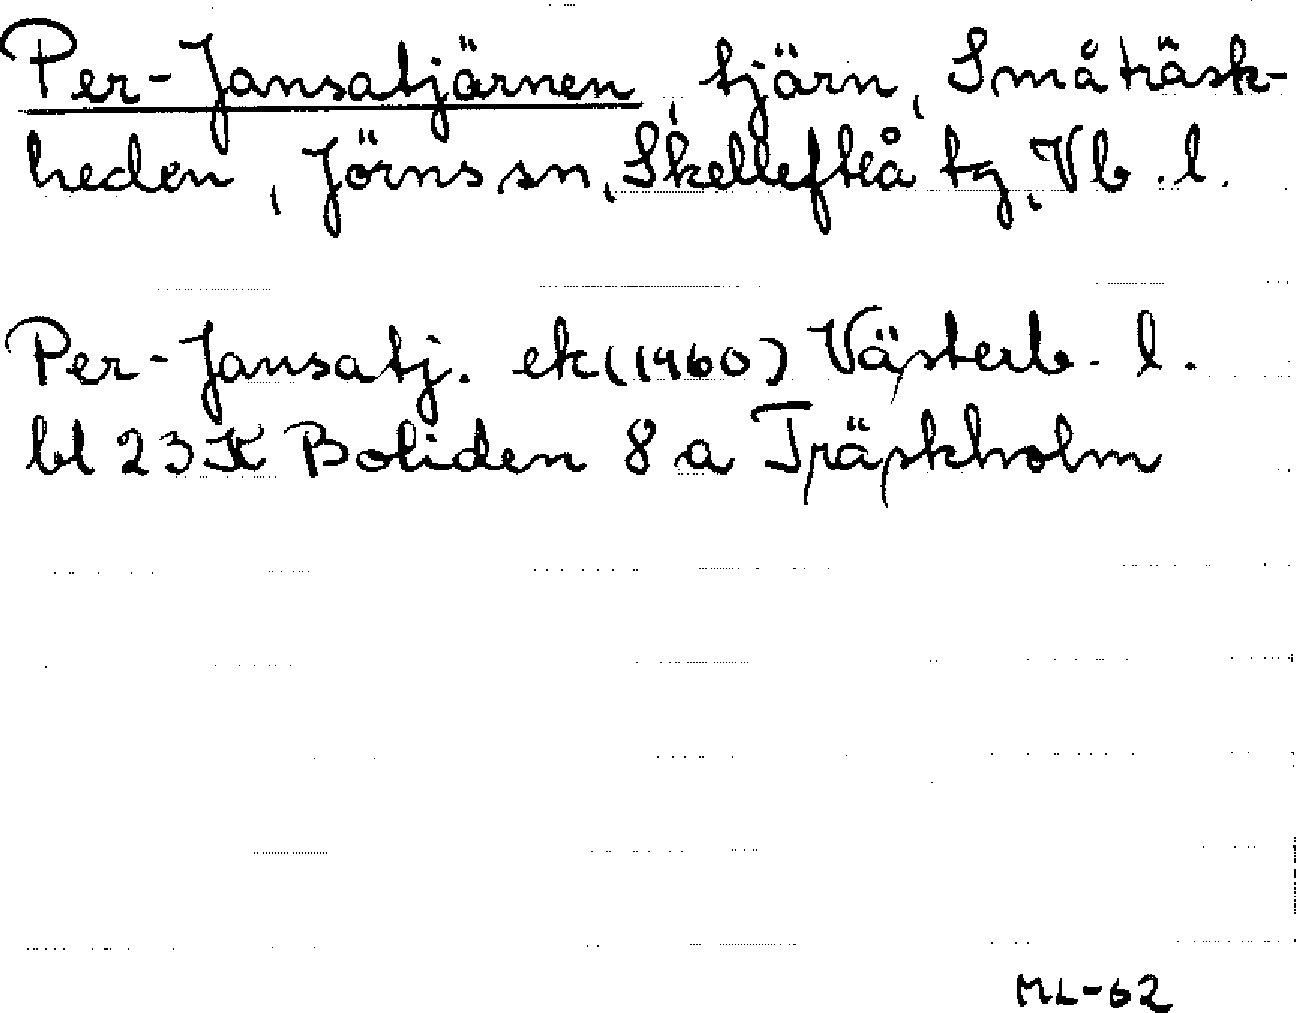 Per-Jansatjärnen, tjärn, Småträsk-
heden, Jörns sn, Skellefteå tg, Vb. l.
Per-Jansatj. ek (1960) Västerb. l.
bl 23K Boliden 8 a Träskholm
ML-62